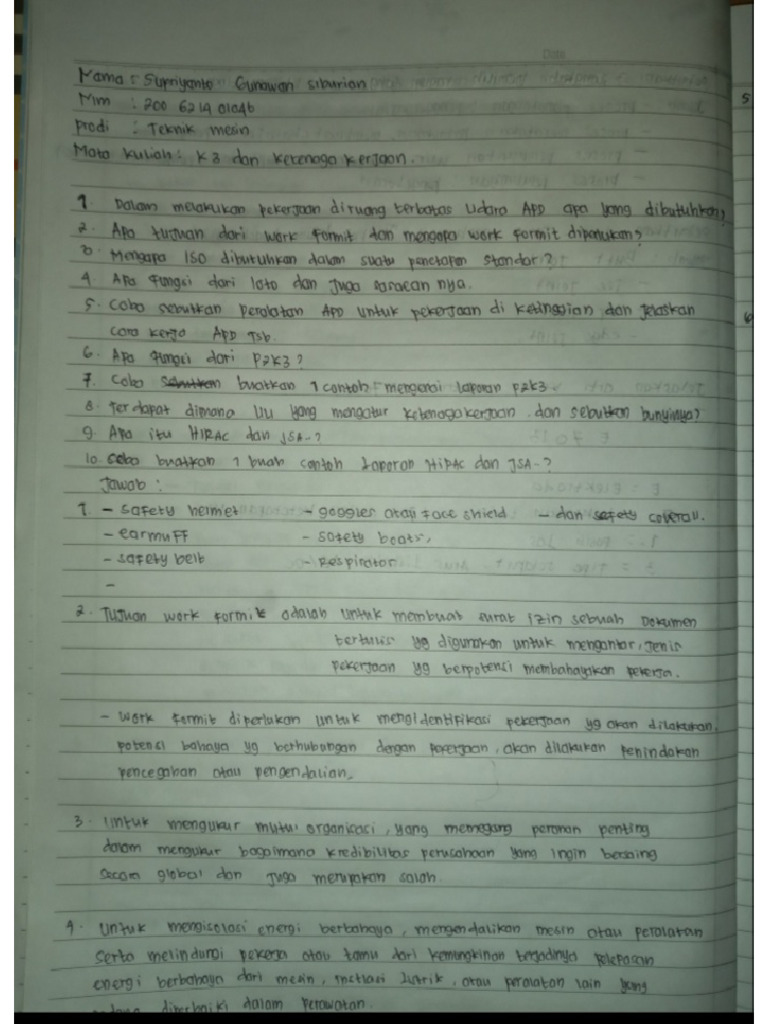 Date
Nama : Supriyanto Gunawan Siburian
Nim : 200 6214 01046
Prodi : Teknik mesin
Mata kuliah : K3 dan ketenaga kerjaan.
1. Dalam melakukan pekerjaan diruang terbatas Udara APD apa yang dibutuhkan?
2. Apa tujuan dari work formit dan mengapa work formit diperlukan?
3. Mengapa ISO dibutuhkan dalam suatu penetapan standar?
4. Apa fungsi dari loto dan juga sasaran nya.
5. Coba sebutkan peralatan APD untuk pekerjaan di ketinggian dan jelaskan
cara kerja APD Tsb.
6. Apa fungsi dari P2K3?
7. Coba buatkan 1 contoh mengenai laporan P2K3.
8. Terdapat dimana UU yang mengatur ketenagakerjaan dan sebutkan bunyinya?
9. Apa itu HIRAC dan JSA-?
10. Coba buatkan 1 buah contoh Laporan HIRAC dan JSA-?
Jawab :
1. - safety helmet - goggles atau face shield - dan safety coverall.
- earmuff - safety boots,
- safety belt - Respirator
-
2. Tujuan work formit adalah untuk membuat surat izin sebuah Dokumen
tertulis yg digunakan untuk mengontor, jenis
pekerjaan yg berpotensi membahayakan pekerja.
- work formit diperlukan untuk mengidentifikasi pekerjaan yg akan dilakukan,
potensi bahaya yg berhubungan dengan pekerjaan, akan dilakukan penindakan
pencegahan atau pengendalian.
3. Untuk mengukur mutu organisasi, yang memegang peranan penting
dalam mengukur bagaimana kredibilitas perusahaan yang ingin bersaing
secara global dan juga merupakan salah.
4. Untuk mengisolasi energi berbahaya, mengendalikan mesin atau peralatan
serta melindungi pekerja atau tamu dari kemungkinan terjadinya pelepasan
energi berbahaya dari mesin, instlasi listrik, atau peralatan lain yang
diperbaiki dalam perawatan.